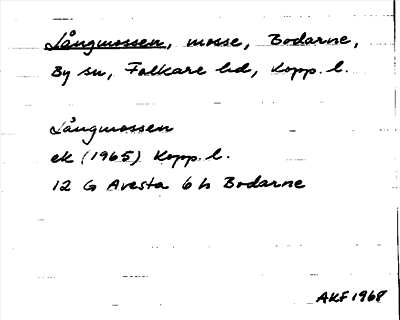 Långmossen, mosse, Bodarne,
By sn, Folkare hd, Kopp. l.
Långmossen
ek (1965) Kopp. l.
12 G Avesta 6 h Bodarne
AKF 1968